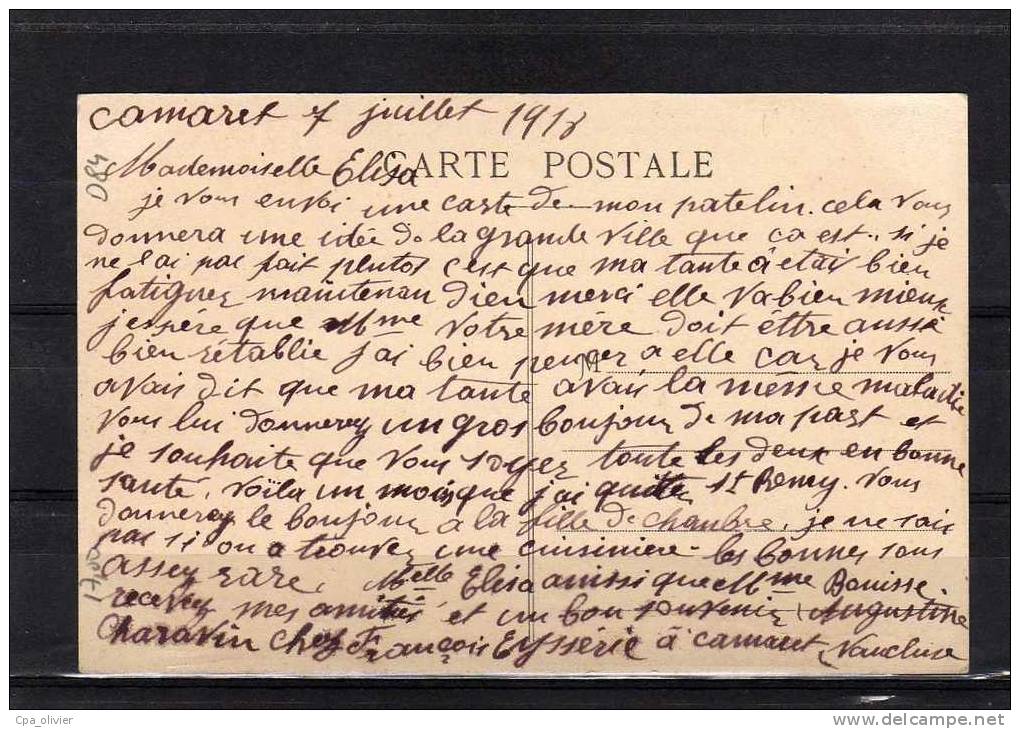 camaret 7 juillet 1918
084
CARTE POSTALE
Mademoiselle Elisa
je vous envoi une carte de mon patelin. cela vous
donnera une idée de la grande ville que ca est. si je
ne lai pas fait plutos c'est que ma tante à étai bien
fatiguez maintenan dieu merci elle va bien mieux
j'espére que Mme votre mére doit éttre aussi
bien rétablie j'ai bien penser a elle car je vous
M
avais dit que ma tante avais la mémme maladie
vous lui donnerez un gros bonjour de ma part et
je souhaite que vous soyez toute les deux en bonne
santé. voïla un mois que j'ai quitter St Remy. vous
donnerez le bonjour à la fille de chambre, je ne sais
pas si on a trouvez une cuisiniere - les bonnes sons
assez rare. Melle Elisa anissi que Mme Bouisse
recevez mes amitiés et un bon souvenir Augustine
Charavin chez François Eysserie à camaret Vaucluse
17,00
Cpa_olivier
www.delcampe.net